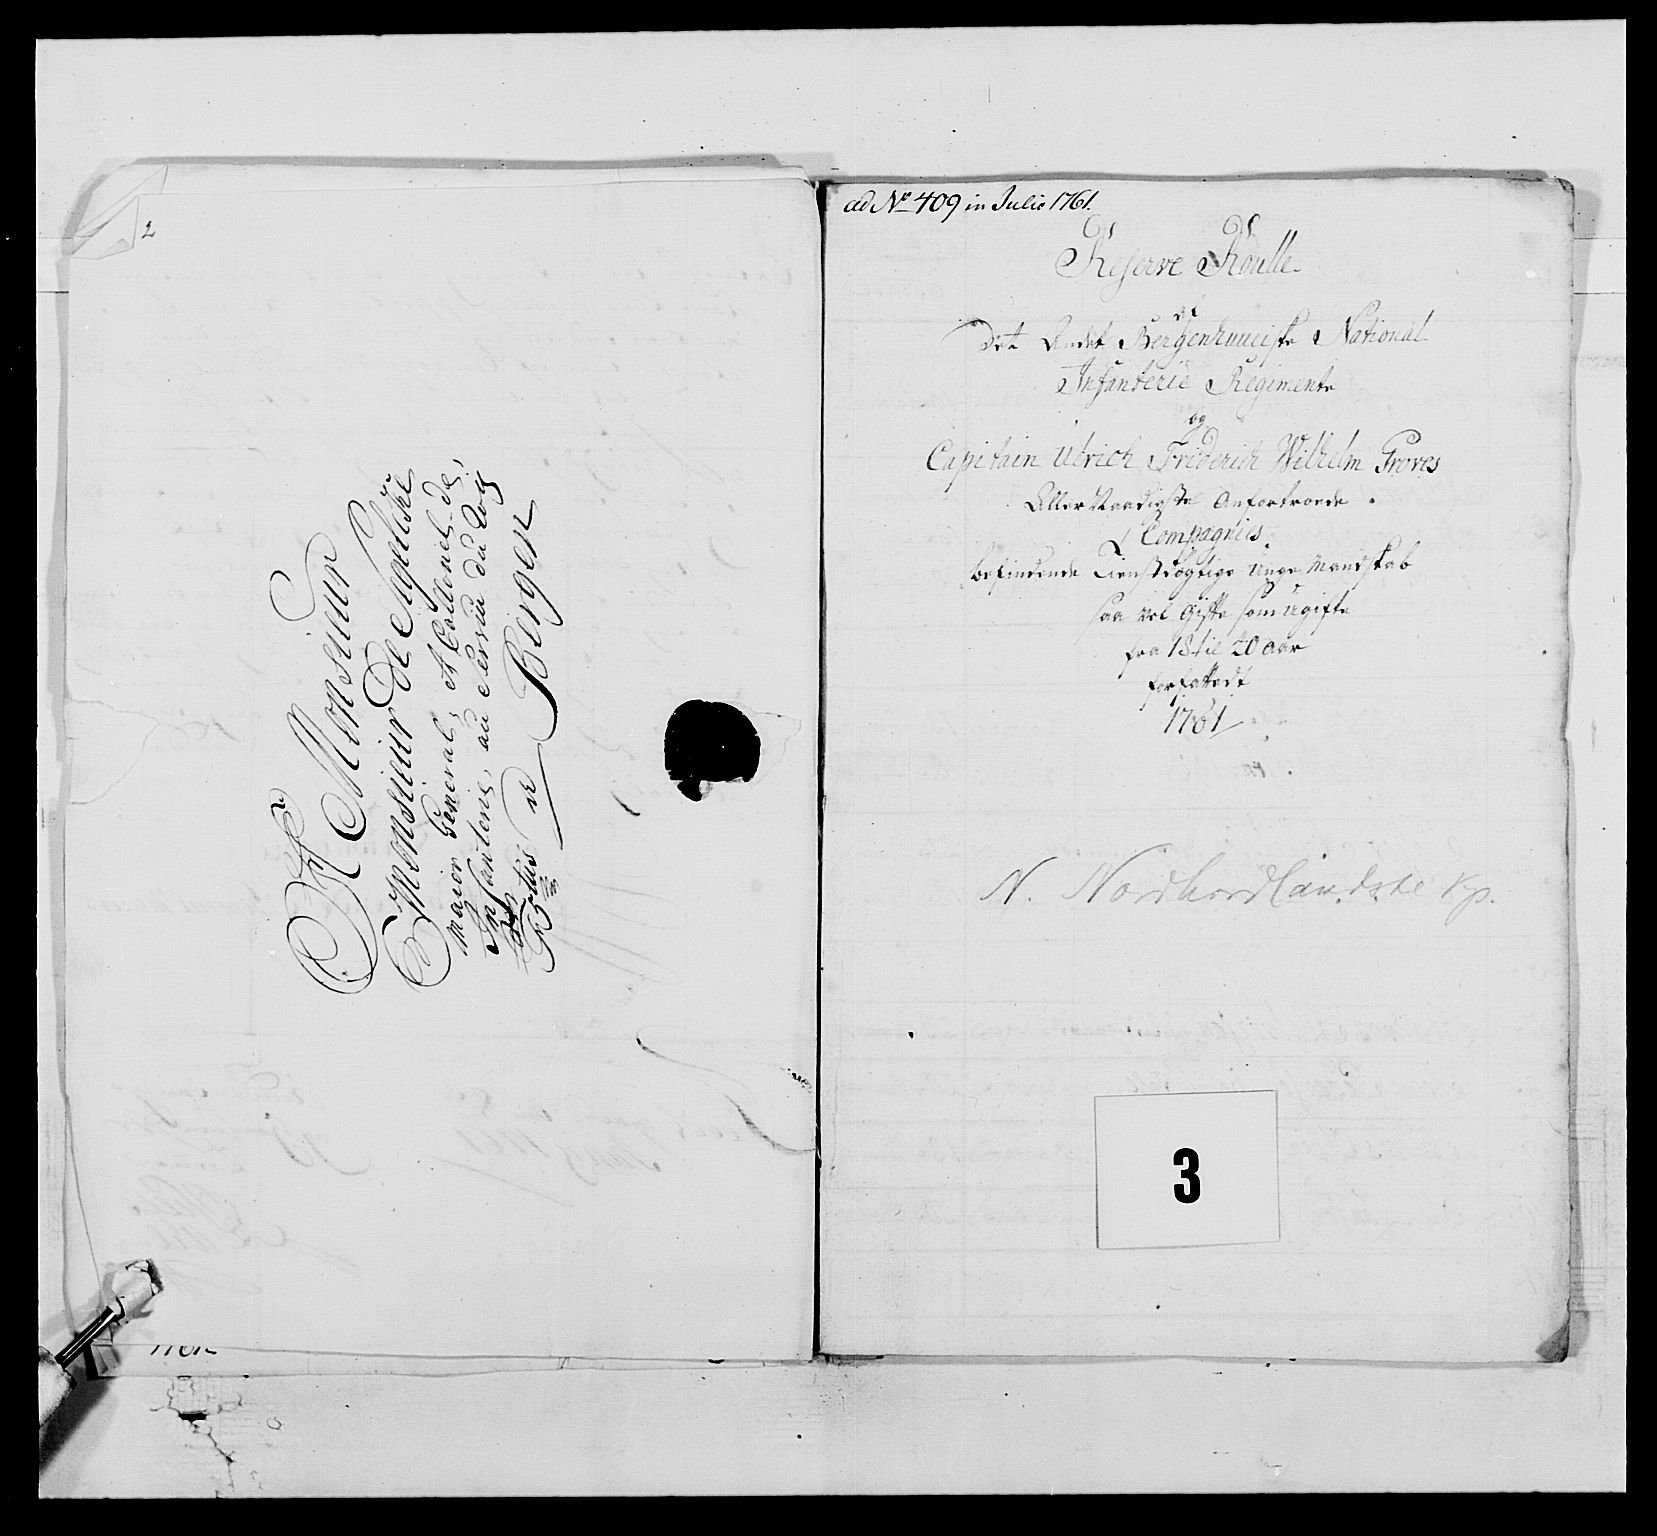 2
A Monsieur
Monsieur de
Maior General, et Collonel de
Infanterie, au Service du Roy
Bergen
ad No 409 in Julio 1761.
Reserve Roulle
af
Det Andet Bergenhuusiske National
Infanterie Regiments
og
Capitain Ulrich Friderich Wilhelm Groves
Allernaadigste Anfortroede
Compagnies
befindende Tienstdygtige Unge Mandskab
saa vel Gifte som Ugifte
fra 18 til 20 aar
forfattedt
1761
N. Nordhordlandske Kp.
3